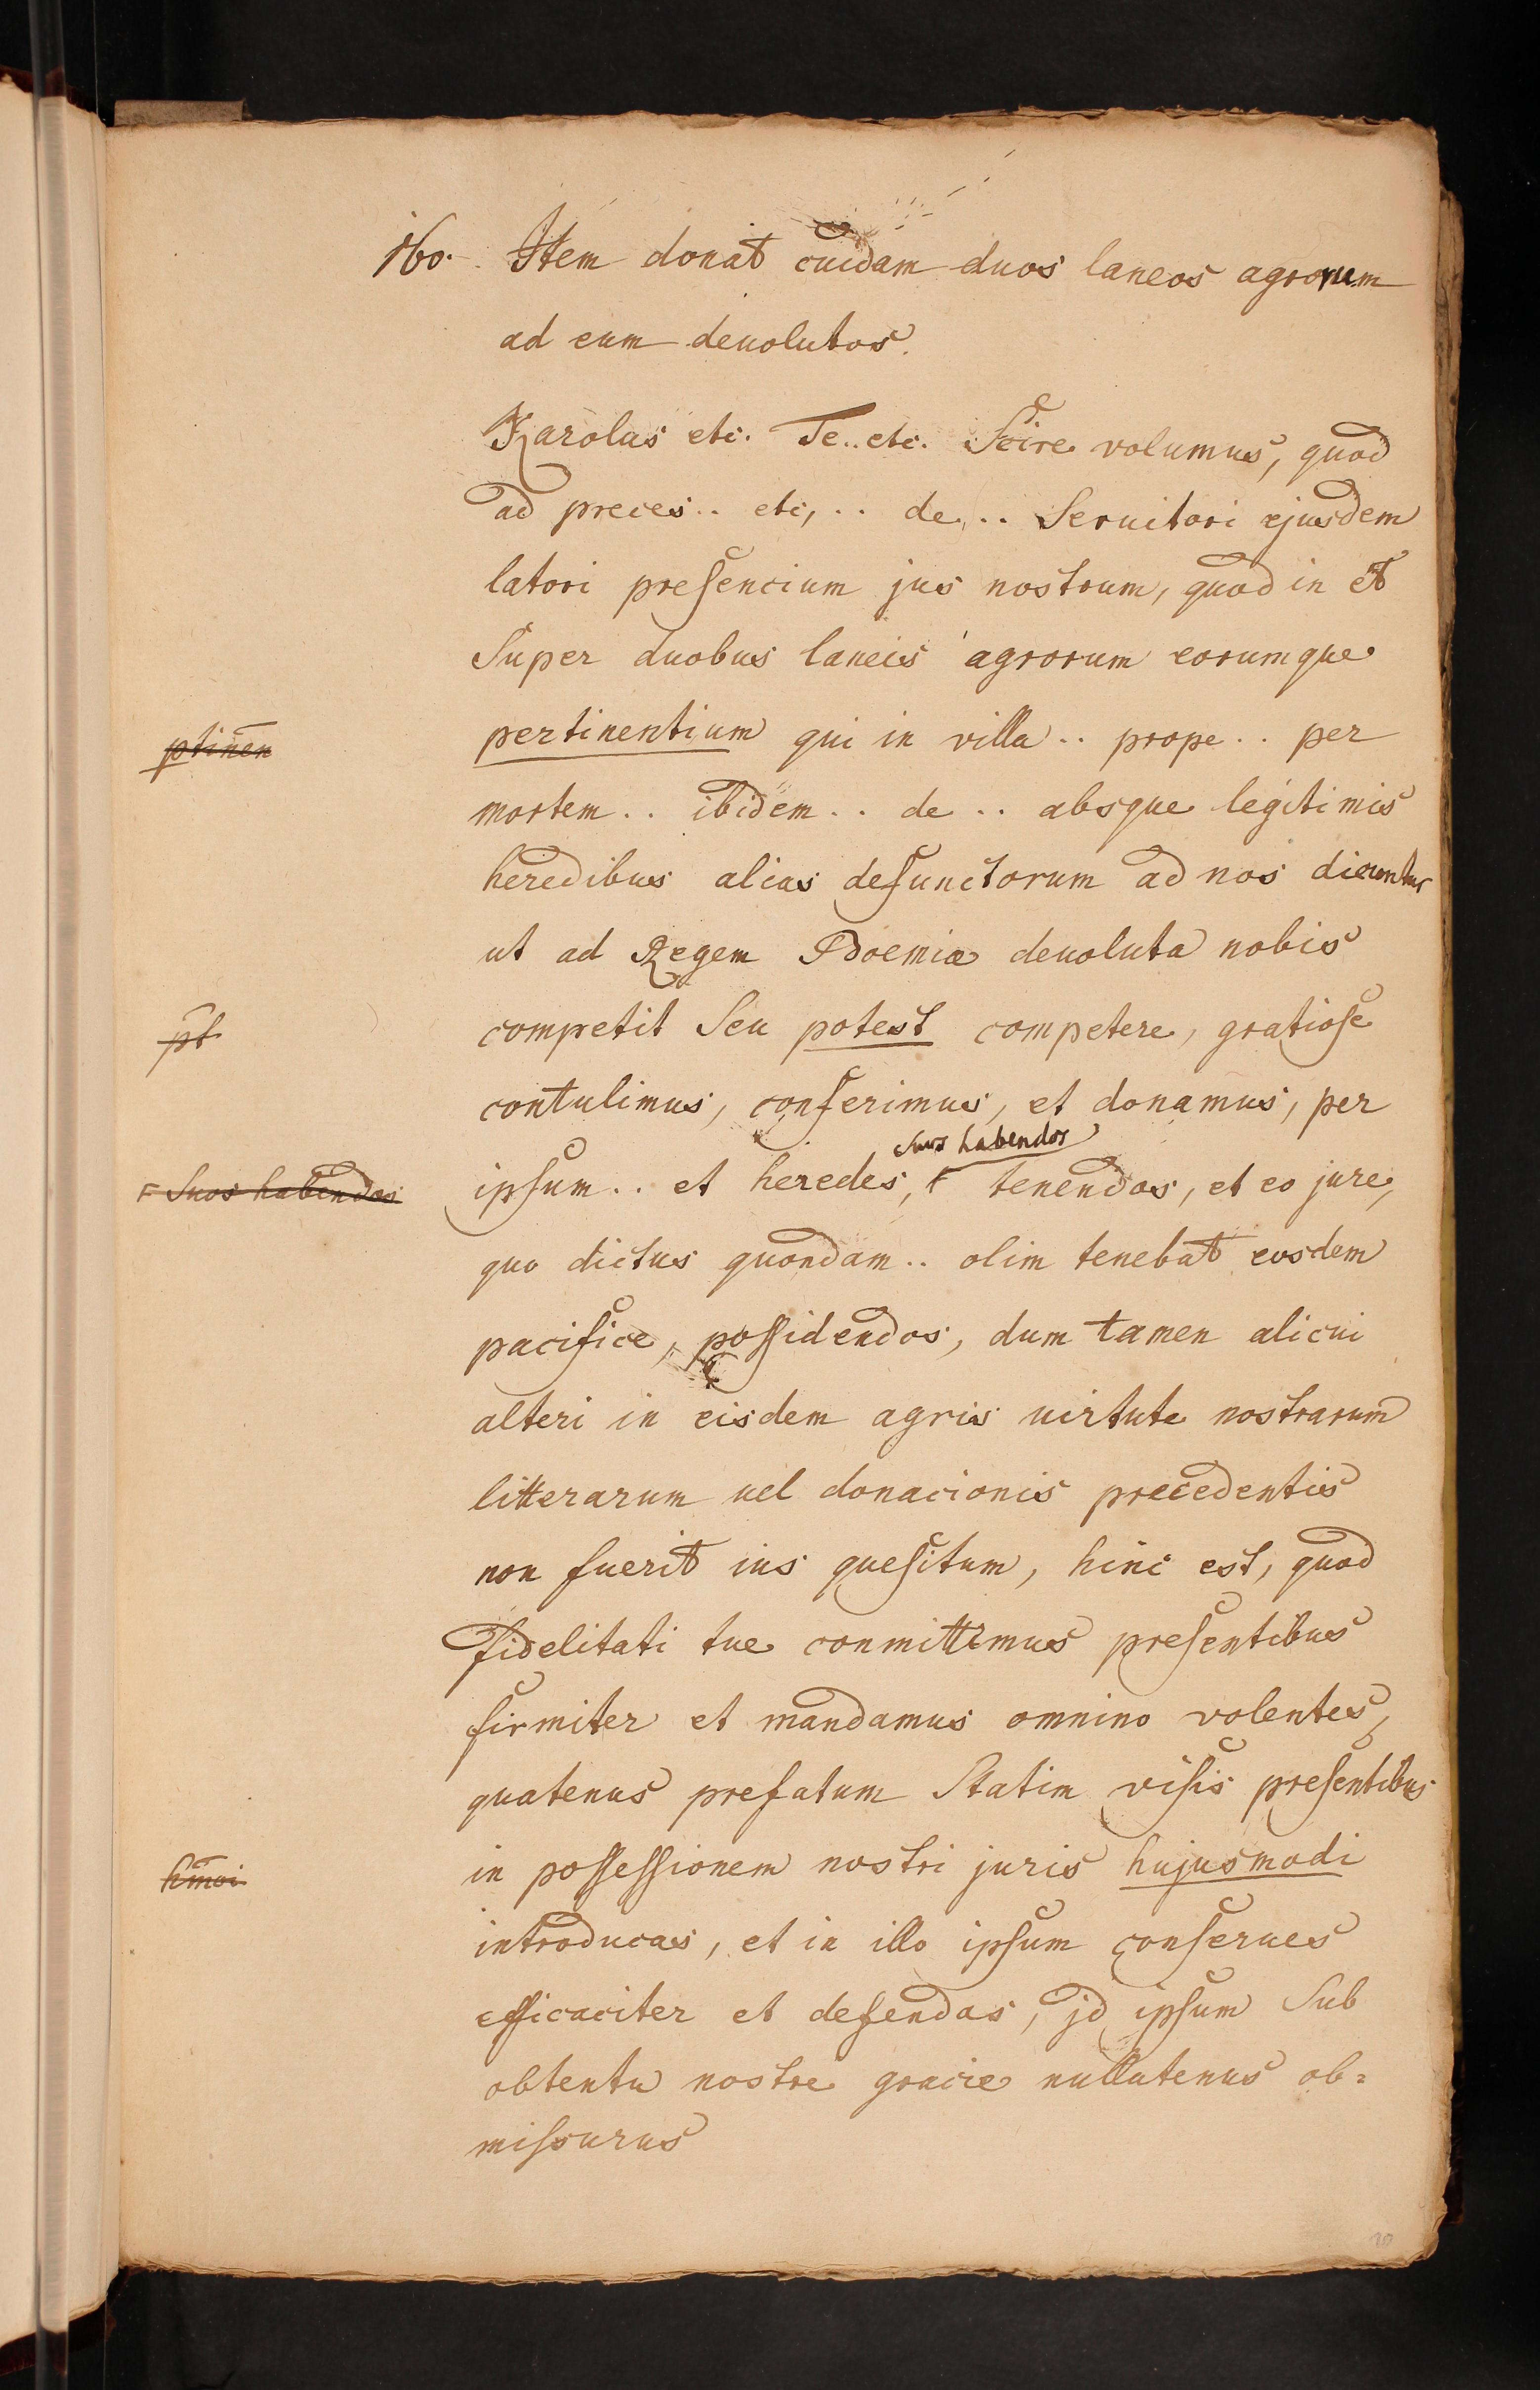 160. Item donat cuidam duos laneos agrorum
ad eum deuolutos.
Karolus etc. Te.. etc. Scire volumus, quod
ad preces.. etc, .. de .. Seruitori ejusdem
latori presencium jus nostrum, quod in et
Super duobus laneis agrorum eorumque
ptinen
pertinentium qui in villa .. prope .. per
mortem .. ibidem .. de .. absque legitimis
heredibus alias defunctorum ad nos dicuntur
ut ad Regem Boemie deuoluta nobis
pt
competit Seu potest competere, gratiose
contulimus, conferimus, et donamus, per
suos habendos
F Suos habendos
ipsum .. et heredes, F tenendos, et eo jure,
quo dictus quondam .. olim tenebat eosdem
pacifice, possidendos, dum tamen alicui
alteri in eisdem agris uirtute nostrarum
litterarum uel donacionis precedentis
non fuerit ius quesitum, hinc est, quod
fidelitati tue conmittimus presentibus
firmiter et mandamus omnino volentes,
quatenus prefatum Statim visis presentibus
hmoi
in possessionem nostri juris hujusmodi
introducas, et in illo ipsum conserues
efficaciter et defendas, jd ipsum Sub
obtentu nostre gracie nullatenus ob=
missurus